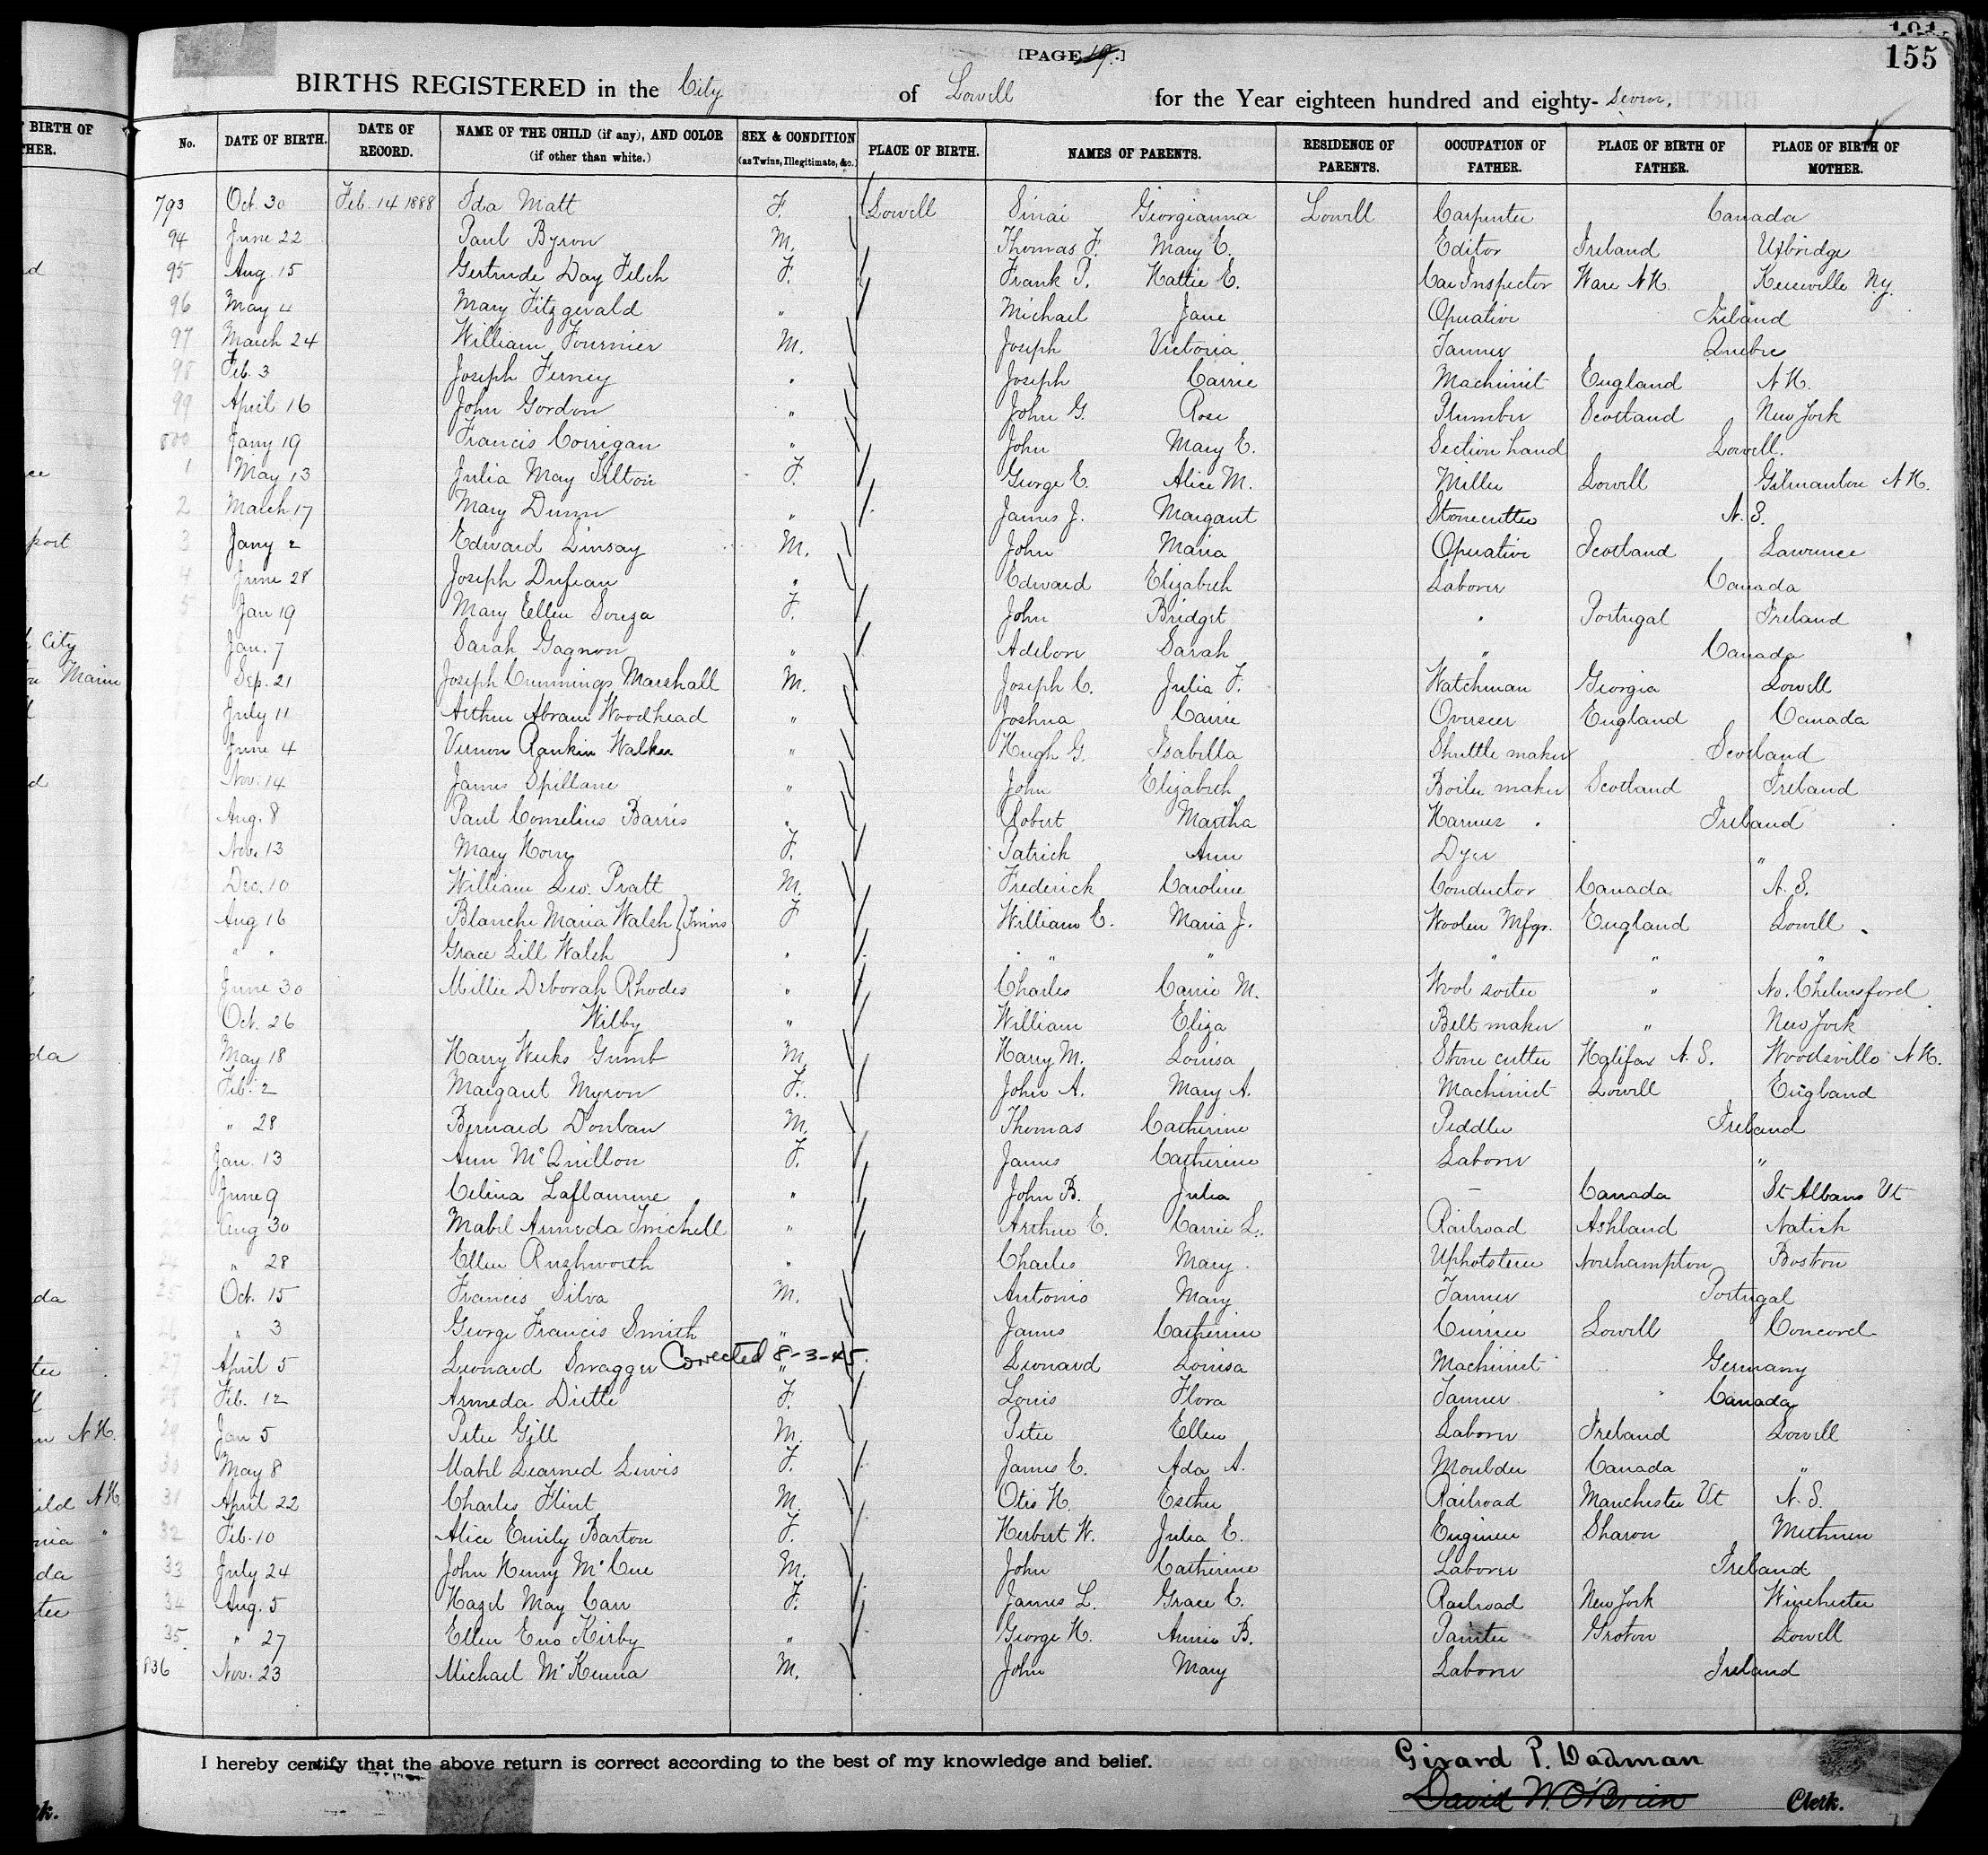 155
[PAGE 19.]
BIRTHS REGISTERED in the City of Lowell for the Year eighteen hundred and eighty- Seven.
No. DATE OF BIRTH. DATE OF RECORD. NAME OF THE CHILD (if any), AND COLOR (if other than white.) SEX & CONDITION (as Twins, Illegitimate, &c.) PLACE OF BIRTH. NAMES OF PARENTS. RESIDENCE OF PARENTS. OCCUPATION OF FATHER. PLACE OF BIRTH OF FATHER. PLACE OF BIRTH OF MOTHER.
793 Oct. 30 Feb. 14 1888 Ida Matt F. Lowell Sinai Georgianna Lowell Carpenter Canada
94 June 22 Paul Byron M. Thomas F. Mary E. Editor Ireland Uxbridge
95 Aug. 15 Gertrude Day Felch F. Frank P. Hattie E. Car Inspector Ware N.H. Keeseville N.Y.
96 May 4 Mary Fitzgerald " Michael Jane Operative Ireland
97 March 24 William Fournier M. Joseph Victoria Tanner Quebec
98 Feb. 3 Joseph Ferney " Joseph Carrie Machinist England N.H.
99 April 16 John Gordon " John G. Rose Plumber Scotland New York
800 Jany 19 Francis Corrigan " John Mary E. Section hand Lowell.
1 May 13 Julia May Tilton F. George E. Alice M. Miller Lowell Gilmanton N.H.
2 March 17 Mary Dunn " James J. Margaret Stonecutter N.S.
3 Jany 2 Edward Linsay M. John Maria Operative Scotland Lawrence
4 June 28 Joseph " Edward Elizabeth Laborer Canada
5 Jan 19 Mary Ellen Souza F. John Bridget " Portugal Ireland
Jan. 7 Sarah Gagnon " Sarah " Canada
Sep. 21 Joseph Cummings Marshall M. Joseph C. Julia F. Watchman Georgia Lowell
July 11 Arthur Abram Woodhead " Joshua Carrie Overseer England Canada
June 4 Vernon Rankin Walker " Hugh G. Isabella Shuttle maker Scotland
Nov. 14 James Spillane " John Elizabeth Boiler maker Scotland Ireland
Aug. 8 Paul Cornelius Barris " Robert Martha Ireland
Nov. 13 Mary F. Patrick Ann Dyer "
Dec. 10 William Leo. Pratt M. Frederick Caroline Conductor Canada N.S.
Aug 16 Blanche Maria Walsh } Twins F William E. Maria J. Woolen Mfgr. England Lowell
" " Grace Lill Walsh " " " " " "
June 30 Millie Deborah Rhodes " Charles Carrie M. Wool sorter " No. Chelmsford
Oct. 26 Wilby " William Eliza Belt maker " New York
May 18 Harry Weeks Gumb M. Harry M. Louisa Stone cutter Halifax N.S. Woodsville N.H.
Feb. 2 Margaret Myron F. John A. Mary A. Machinist Lowell England
" 28 Bernard Donlan M. Thomas Catherine Peddler Ireland
Jan. 13 Ann McQuillon F. James Catherine Laborer "
June 9 Celina Laflamme " John B. Julia — Canada St Albans Vt
Aug 30 Mabel Armeda Twichell " Arthur E. Carrie L. Railroad Ashland Natick
24 " 28 Ellen Rushworth " Charles Mary Upholsterer Northampton Boston
25 Oct. 15 Francis Silva M. Antonio Mary Tanner Portugal
26 " 3 George Francis Smith " James Catherine Currier Lowell Concord
27 April 5 Leonard Swagger Corrected 8-3-45. " Leonard Louisa Machinist Germany
28 Feb. 12 Armeda F. Louis Flora Tanner Canada
29 Jan 5 Peter Gill M. Peter Ellen Laborer Ireland Lowell
30 May 8 Mabel Learned Lewis F. James E. Ada A. Moulder Canada "
31 April 22 Charles Flint M. Otis H. Esther Railroad Manchester Vt N.S.
32 Feb. 10 Alice Emily Barton F. Herbert W. Julia E. Engineer Sharon Methuen
33 July 24 John Henry McCue M. John Catherine Laborer Ireland
34 Aug. 5 Hazel May Carr F. James L. Grace E. Railroad New York Winchester
35 " 27 Ellen Eno Kirby " George H. Annie B. Painter Groton Lowell
836 Nov. 23 Michael McKenna M. John Mary Laborer Ireland
I hereby certify that the above return is correct according to the best of my knowledge and belief.
Girard P. Dadman
David W. O'Brien Clerk.